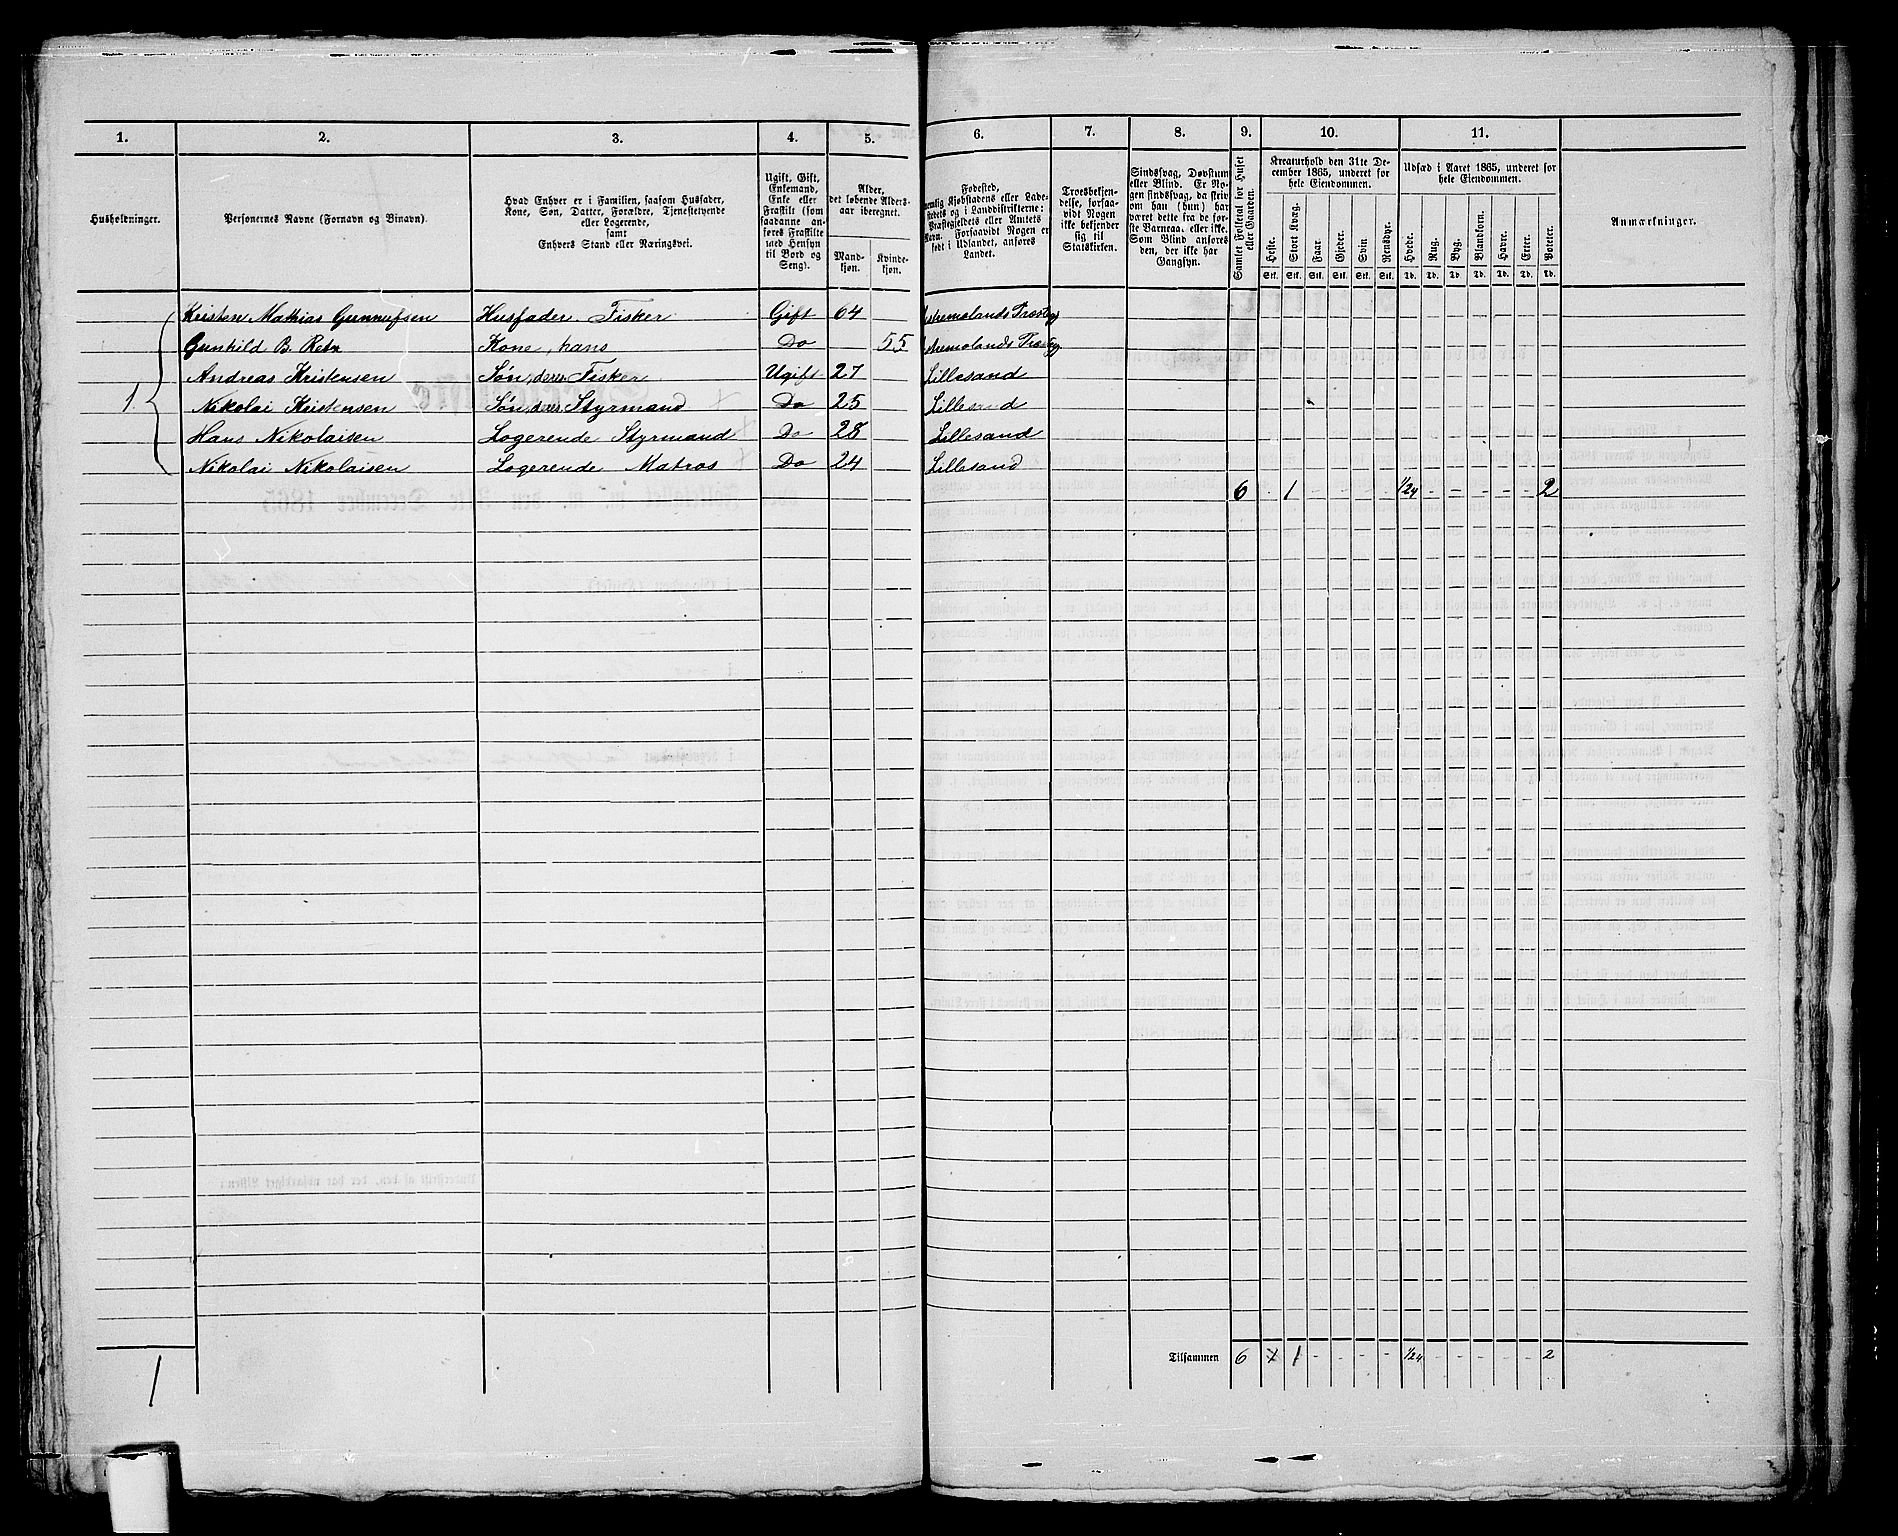 1. 2. 3. 4. 5. 6. 7. 8. 9. 10. 11.
Husholdninger.
Personernes Navne (Fornavn og Binavn).
Hvad Enhver er i Familien, saasom Husfader,
Kone, Søn, Datter, Forældre, Tjenestetyende
eller Logerende,
samt
Enhvers Stand eller Næringsvei.
Ugift, Gift,
Enkemand,
Enke eller
Fraskilt (som
saadanne an-
føres Fraskilte
med Hensyn
til Bord og
Seng).
Alder,
det løbende Alders-
aar iberegnet.
Mand-
kjøn.
Kvinde-
kjøn.
Fødested,
nemlig Kjøbstadens eller Lade-
stedets og i Landdistrikterne:
Præstegjeldets eller Amtets
Navn. Forsaavidt Nogen er
født i Udlandet, anføres
Landet.
Troesbekjen-
delse, forsaa-
vidt Nogen
ikke bekjender
sig til
Statskirken.
Sindssvag, Døvstum
eller Blind. Er No-
gen sindssvag, da skriv
om han (hun) har
været dette fra de før-
ste Barneaa. eller ikke.
Som Blind anføres
den, der ikke har
Gangsyn.
Samlet Folketal for Huset
eller Gaarden.
Kreaturhold den 31te De-
cember 1865, underet for
hele Eiendommen.
Heste. Stort Kvæg. Faar. Gjeder. Svin. Rensdyr.
Stk. Stk. Stk. Stk. Stk. Stk.
Udsæd i Aaret 1865, underet for
hele Eiendommen.
Hvede. Rug. Byg. Blandkorn. Havre. Erter. Poteter.
Td. Td. Td. Td. Td. Td. Td.
Anmærkninger.
Kristen Mathias Gunnufsen Husfader. Fisker Gift 64
Gunhild B. Kone, hans Do 55
Andreas Kristensen Søn, deres Fisker Ugift 27 Lillesand
1. Nikolai Kristensen Søn, deres Styrmand Do 25 Lillesand
Hans Nikolaisen Logerende Styrmand Do 28 Lillesand
Nikolai Nikolaisen Logerende Matros Do 24 Lillesand
6 - 1 - - - - 1/24 - - - - - 2
Tilsammen 6 1 - - - - 1/24 - - - - - 2
1